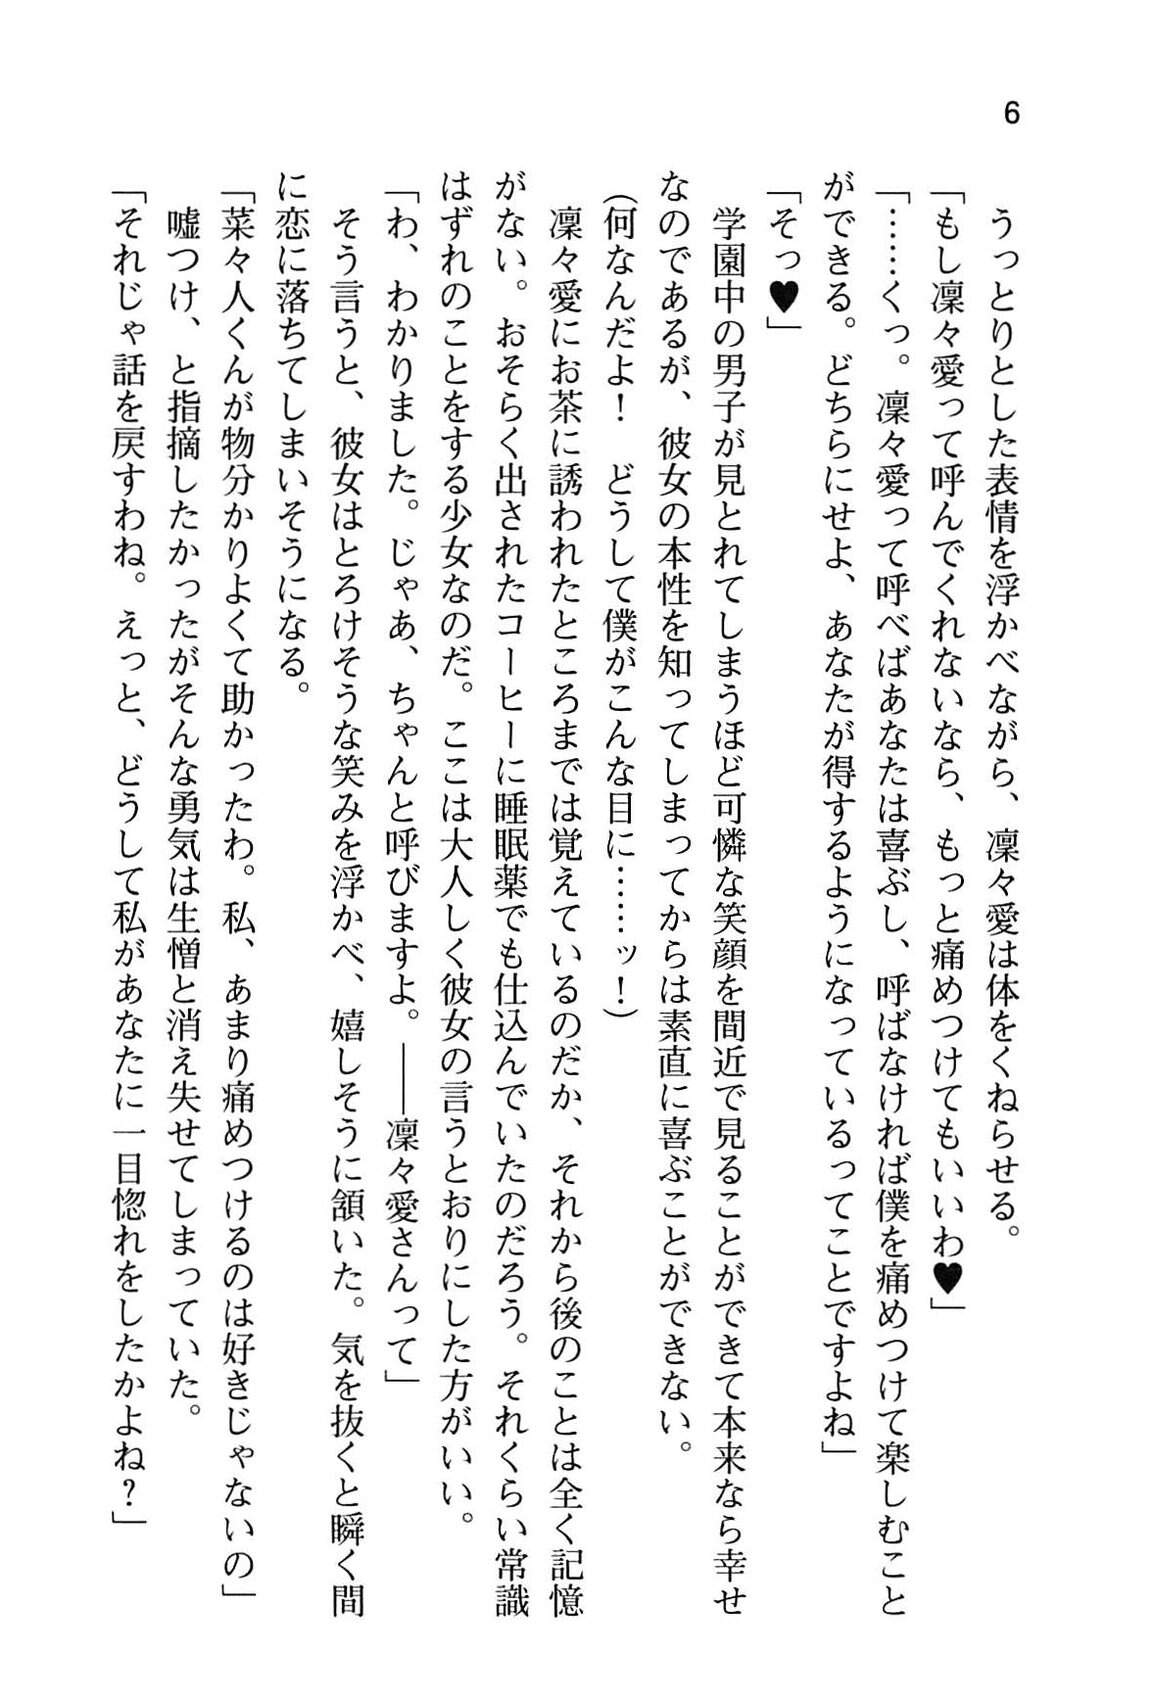 6
　うっとりとした表情を浮かべながら、凜々愛は体をくねらせる。
「もし凜々愛って呼んでくれないなら、もっと痛めつけてもいいわ♥」
「……くっ。凜々愛って呼べばあなたは喜ぶし、呼ばなければ僕を痛めつけて楽しむこと
ができる。どちらにせよ、あなたが得するようになっているってことですよね」
「そっ♥」
　学園中の男子が見とれてしまうほど可憐な笑顔を間近で見ることができて本来なら幸せ
なのであるが、彼女の本性を知ってしまってからは素直に喜ぶことができない。
（何なんだよ！　どうして僕がこんな目に……ッ！）
　凜々愛にお茶に誘われたところまでは覚えているのだか、それから後のことは全く記憶
がない。おそらく出されたコーヒーに睡眠薬でも仕込んでいたのだろう。それくらい常識
はずれのことをする少女なのだ。ここは大人しく彼女の言うとおりにした方がいい。
「わ、わかりました。じゃあ、ちゃんと呼びますよ。――凜々愛さんって」
　そう言うと、彼女はとろけそうな笑みを浮かべ、嬉しそうに頷いた。気を抜くと瞬く間
に恋に落ちてしまいそうになる。
「菜々人くんが物分かりよくて助かったわ。私、あまり痛めつけるのは好きじゃないの」
　嘘つけ、と指摘したかったがそんな勇気は生憎と消え失せてしまっていた。
「それじゃ話を戻すわね。えっと、どうして私があなたに一目惚れをしたかよね？」